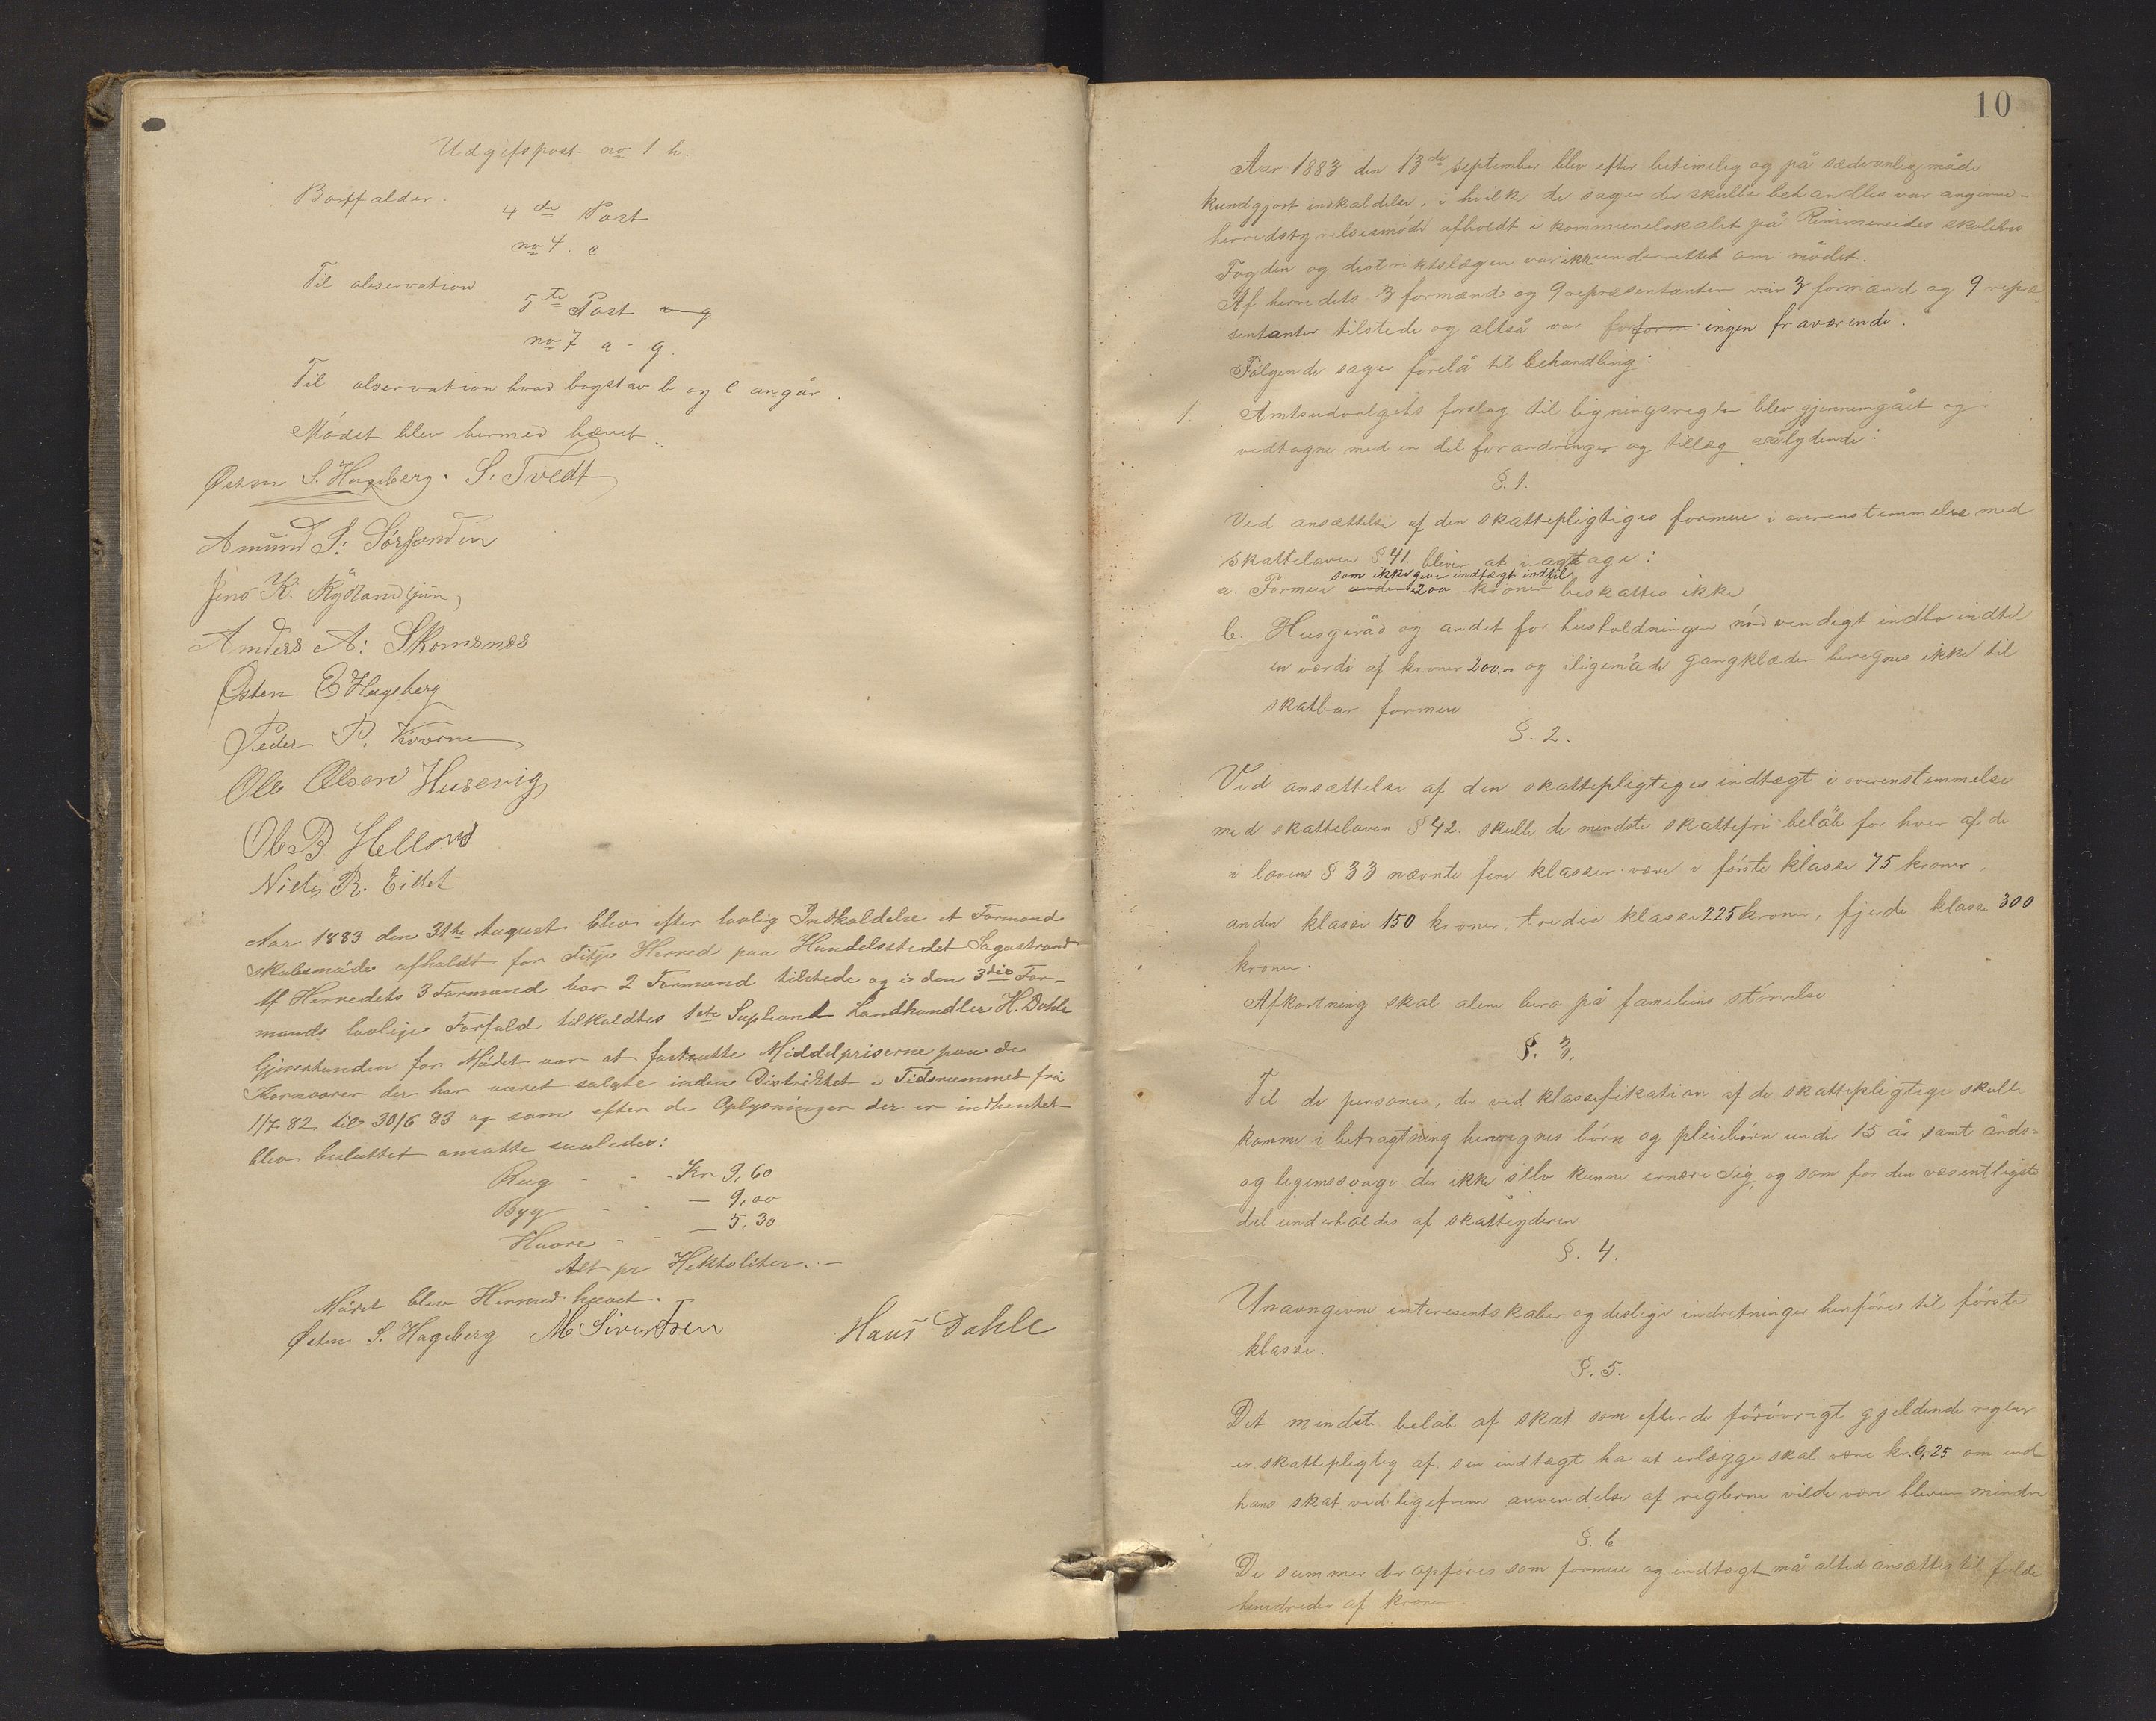 Udgifspost no 1 h.
Bortfalder.
4de Post
no 4. e
Til observation
5te Post
no 7 a - g.
Til observation hvad bogstav b og c angår.
Mødet blev hermed hævet.
Østen S. Hageberg. S. Tvedt
Amund S. Sørfonden
Jens K. Rydland jun,
Anders A: Skomsnæs
Østen E Hageberg
Peder P. Kverne
Ole Olson Husevig
Ole B Hellond
Niels R. Eidet
Aar 1883 den 31te August blev efter lovlig Indkaldelse et Formand
skabsmøde afholdt for Fitje Herred paa Handelsstedet Sagastrand
Af Herredets 3 Formænd var 2 Formænd tilstede og i den 3dies For-
mands lovlige Forfald tilkaldtes 1ste Supleant Landhandler H. Dahle
Gjenstanden for Mødet var at fastsætte Middelpriserne paa de
Kornvarer der har været solgte inden Distriktet i Tidsrummet fra
1/7 82 til 30/6 83 og som efter de Oplysninger der er indhentet
blev besluttet ansatte saaledes:
Rug - - - Kr 9,60
Byg - - — 9,00
Havre - - — 5,30
Alt pr Hektoliter. —
Mødet blev Hermed hævet.
Østen S. Hageberg M Sivertsen Hans Dahle
10
Aar 1883 den 13de september blev efter betimelig og på sædvanlig måde
kundgjort indkaldelse, i hvilke de sager der skulle behandles var angivne -
herredstyrelsesmøde afholdt i kommunelokalet på Rimmereides skolehus
Fogden og distriktslægen var ikke underrettet om mødet.
Af herredets 3 formænd og 9 repræsentanter var 3 formænd og 9 repræ-
sentanter tilstede og altså var forform ingen fraværende.
Følgende sager forelå til behandling:
1. Amtsudvalgets forslag til ligningsregler blev gjennemgået og
vedtagne med en del forandringer og tillæg sålydende:
§. 1.
Ved ansættelse af den skattepligtiges formue i overenstemmelse med
skatteloven § 41. bliver at iagttage:
som ikke giver indtægt indtil
a. Formue under 200 kroner beskattes ikke
b. Husgeråd og andet for husholdningen nødvendigt indbo indtil
en værdi af kroner 200.00 og iligemåde gangklæder beregnes ikke til
skatbar formue
§. 2.
Ved ansættelse af den skattepligtiges indtægt i overenstemmelse
med skatteloven § 42. skulle de mindste skattefri beløb for hver af de
i lovens § 33 nævnte fire klasser være i første klasse 75 kroner,
anden klasse 150 kroner, tredie klasse 225 kroner, fjerde klasse 300
kroner.
Afkortning skal alene bero på familiens størrelse
§. 3.
Til de personer, der ved klassifikation af de skattepligtige skulle
komme i betragtning henregnes børn og pleiebørn under 15 år samt ånds-
og legemssvage der ikke selv kunne ernære sig og som for den væsentligste
del underholdes af skatteyderen
§. 4.
Unavngivne interesentskaber og deslige indretninger henføres til første
klasse.
§. 5.
Det mindste beløb af skat som efter de forøvrigt gjeldende regler
en skattepligtig af sin indtægt ha at erlægge skal være kr. 0,25 om end
hans skat ved ligefrem anvendelse af reglerne vilde være bleven mindre
§. 6
De summer der opføres som formue og indtægt må altid ansættes til fulde
hundreder af kroner